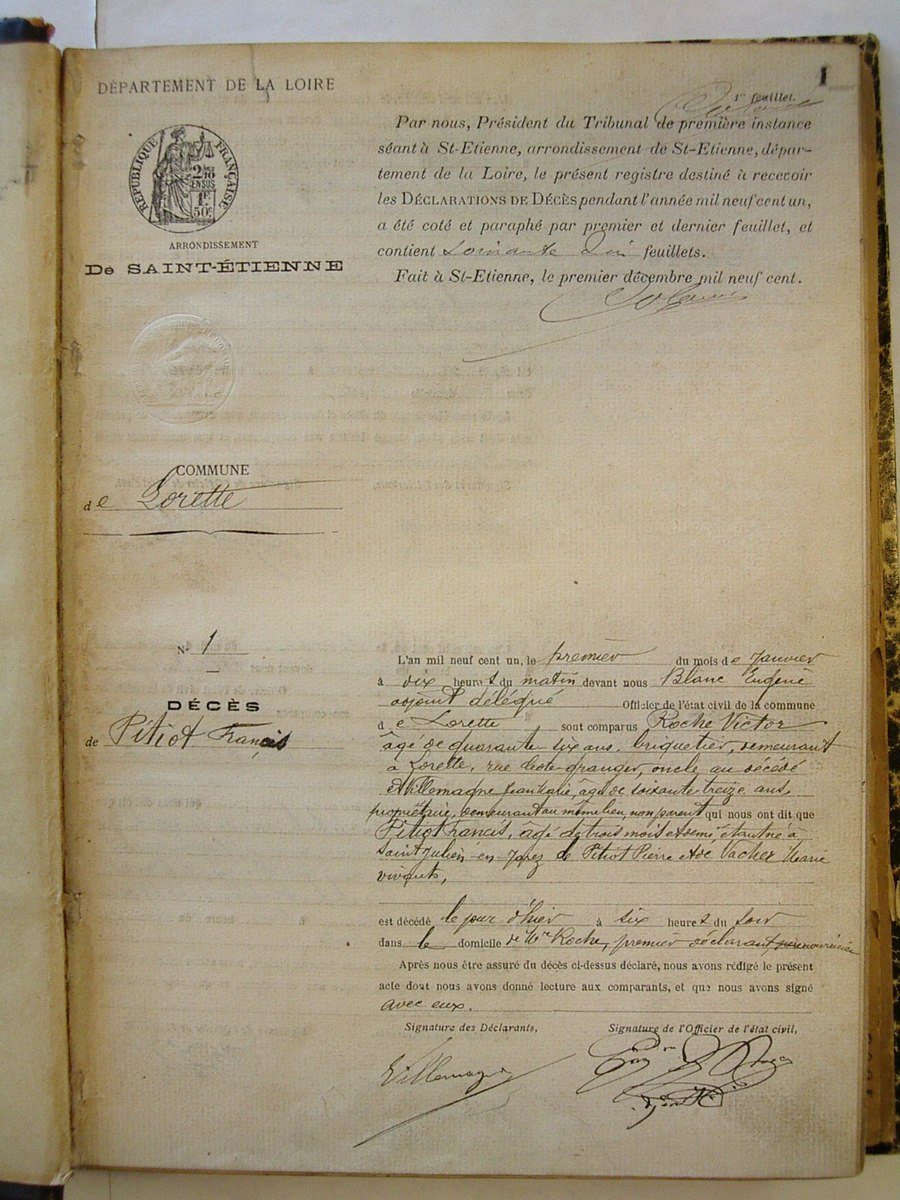 DÉPARTEMENT DE LA LOIRE
1
1er feuillet.
RÉPUBLIQUE FRANÇAISE
2/10 EN SUS
1F 50C
ARRONDISSEMENT
De SAINT-ÉTIENNE
Par nous, Président du Tribunal de première instance
séant à St-Etienne, arrondissement de St-Etienne, dépar-
tement de la Loire, le présent registre destiné à recevoir
les DÉCLARATIONS DE DÉCÈS pendant l'année mil neuf cent un,
a été coté et paraphé par premier et dernier feuillet, et
contient feuillets.
Fait à St-Etienne, le premier décembre mil neuf cent.
COMMUNE
de Lorette
N° 1
DÉCÈS
de Pitiot Francis
L'an mil neuf cent un, le premier du mois de Janvier
à dix heures du matin devant nous Blanc Eugène
adjoint délégué Officier de l'état civil de la commune
de Lorette sont comparus Roche Victor
âgé de quarante-six ans, briquetier, demeurant
à Lorette, rue granger, oncle au décédé
et Villemagne âgé de soixante treize ans,
propriétaire, demeurant au même lieu, non parent qui nous ont dit que
Pitiot Francis, âgé de trois mois et demi étant né à
Saint Julien-en-Jarez de Pitiot Pierre et de Vacher Marie
vivants,
est décédé le jour d'hier à six heures du soir
dans le domicile de Mr Roche, premier déclarant
Après nous être assuré du décès ci-dessus déclaré, nous avons rédigé le présent
acte dont nous avons donné lecture aux comparants, et que nous avons signé
avec eux.
Signature des Déclarants,
Signature de l'Officier de l'état civil,
Villemagne